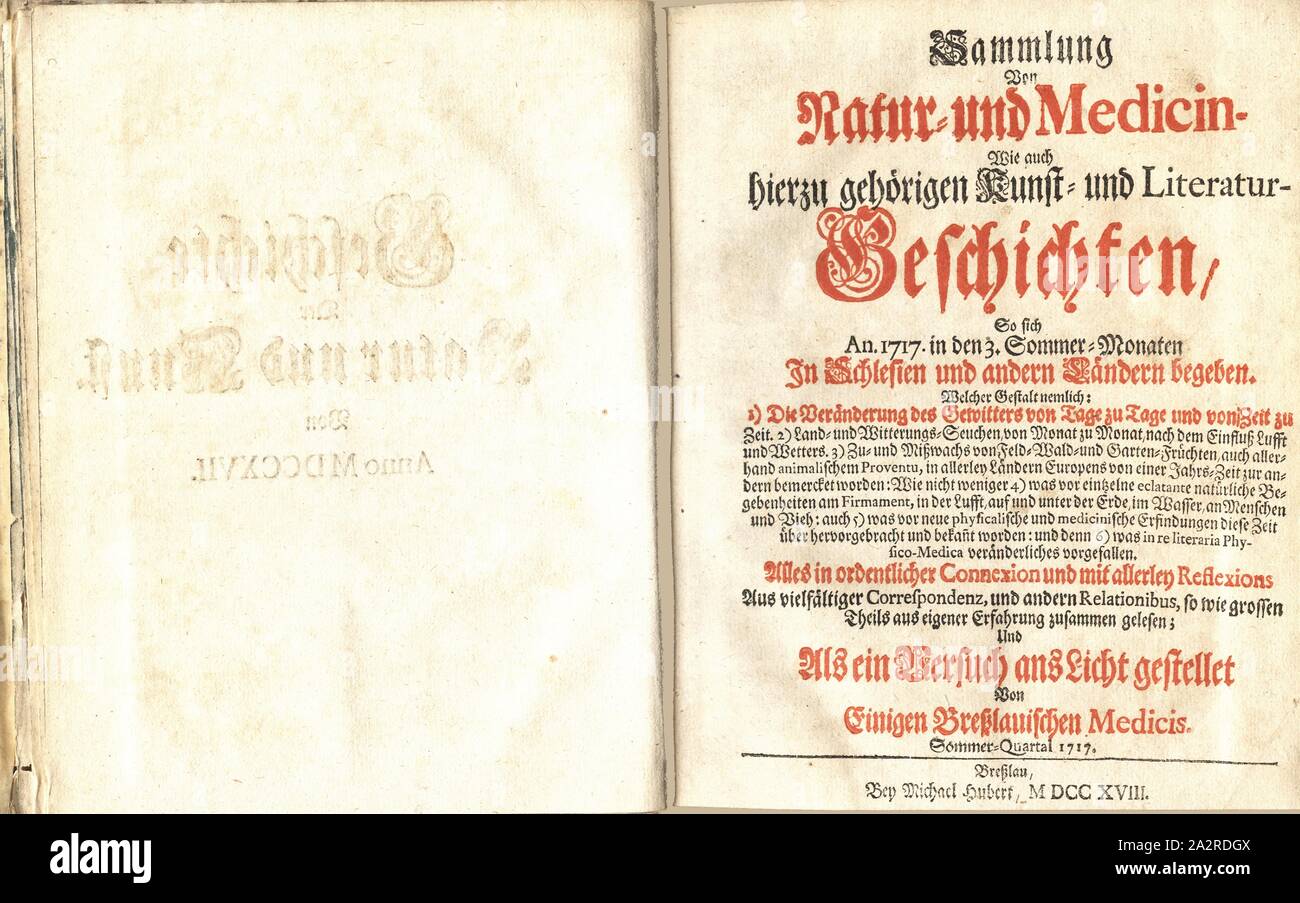 Geschichte
Der
Natur und Kunst.
Von
Anno MDCCXVII.
Sammlung
Von
Natur- und Medicin-
Wie auch
hierzu gehörigen Kunst- und Literatur-
Geschichten /
So sich
An. 1717. in den 3. Sommer-Monaten
In Schlesien und andern Ländern begeben.
Welcher Gestalt nemlich:
1) Die Veränderung des Gewitters von Tage zu Tage und von Zeit zu
Zeit. 2) Land- und Witterungs-Seuchen, von Monat zu Monat, nach dem Einfluß Lufft
und Wetters. 3) Zu- und Mißwachs von Feld- Wald- und Garten-Früchten, auch aller-
hand animalischem Proventu, in allerley Ländern Europens von einer Jahrs-Zeit zur an-
dern bemercket worden: Wie nicht weniger 4) was vor eintzelne eclatante natürliche Be-
gebenheiten am Firmament, in der Lufft, auf und unter der Erde, im Wasser, an Menschen
und Vieh: auch 5) was vor neue physicalische und medicinische Erfindungen diese Zeit
über hervorgebracht und bekañt worden: und denn 6) was in re literaria Phy-
sico-Medica veränderliches vorgefallen.
Alles in ordentlicher Connexion und mit allerley Reflexions
Aus vielfältiger Correspondenz, und andern Relationibus, so wie grossen
Theils aus eigener Erfahrung zusammen gelesen;
Und
Als ein Versuch ans Licht gestellet
Von
Einigen Breßlauischen Medicis.
Sommer-Quartal 1717.
Breßlau,
Bey Michael Hubert, MDCC XVIII.
alamy
Image ID: 2A2RDGX
www.alamy.com